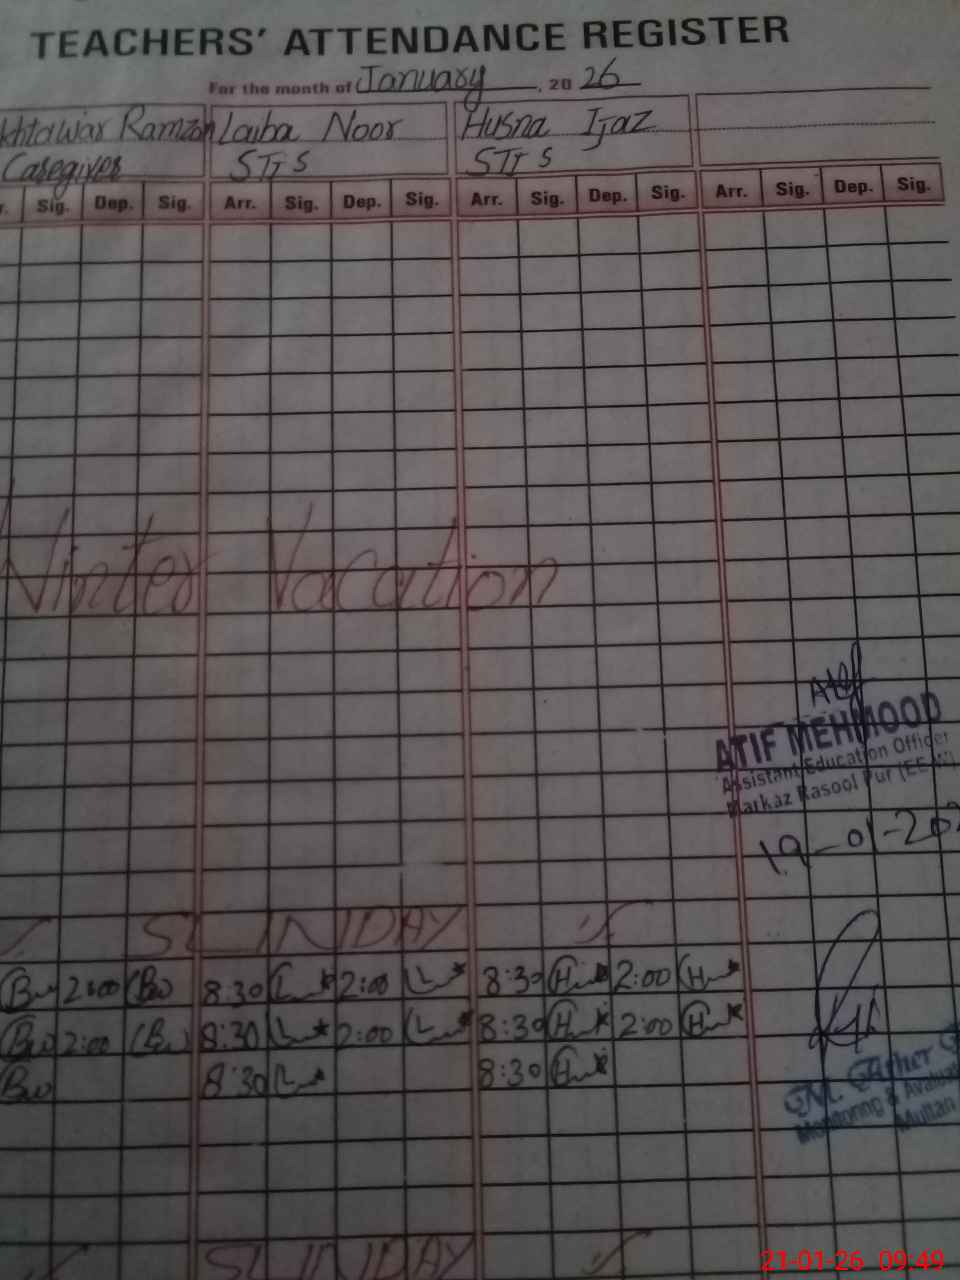 TEACHERS' ATTENDANCE REGISTER
For the month of January, 2026
khtawar Ramzan Laiba Noor Husna Ijaz
Caregiver
Sig. Dep. Sig. Arr. Sig. Dep. Sig. Arr. Sig. Dep. Sig. Arr. Sig. Dep. Sig.
Winter Vacation
ATIF MEHMOOD
Assistant Education Officer
Markaz Rasool Pur
19-01-202
SUNDAY
2:00 8:30 2:00 8:30 2:00
2:00 8:30 2:00 8:30 2:00
8:30 8:30
Monitoring &
Multan
SUNDAY
21-01-26 09:49